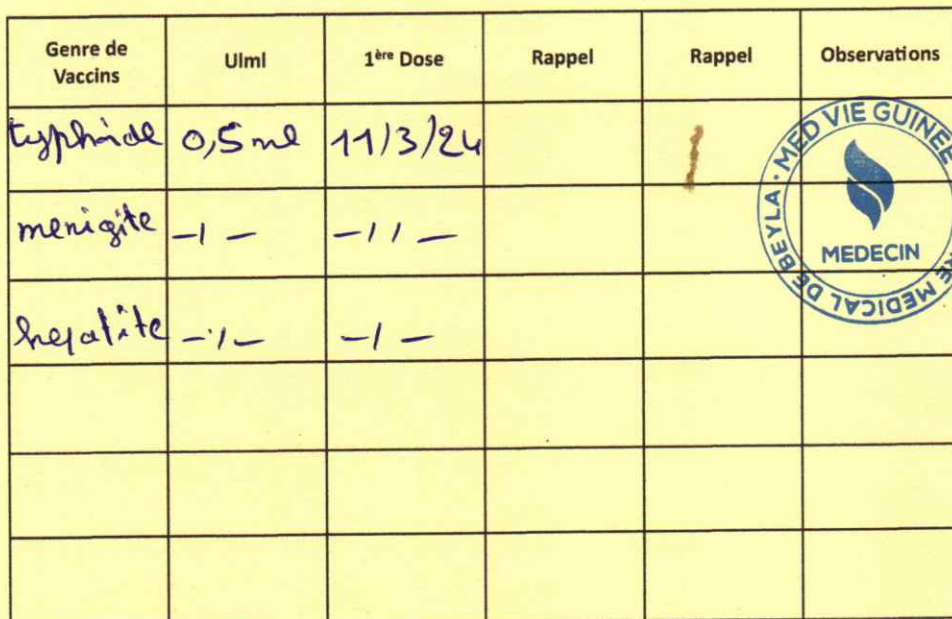 Genre de Vaccins UIml 1ère Dose Rappel Rappel Observations
typhoide 0,5 ml 11/3/24
menigite -1- -11-
hepatite -1- -1-
MED VIE GUINEE
MEDECIN
MEDICAL DE BEYLA